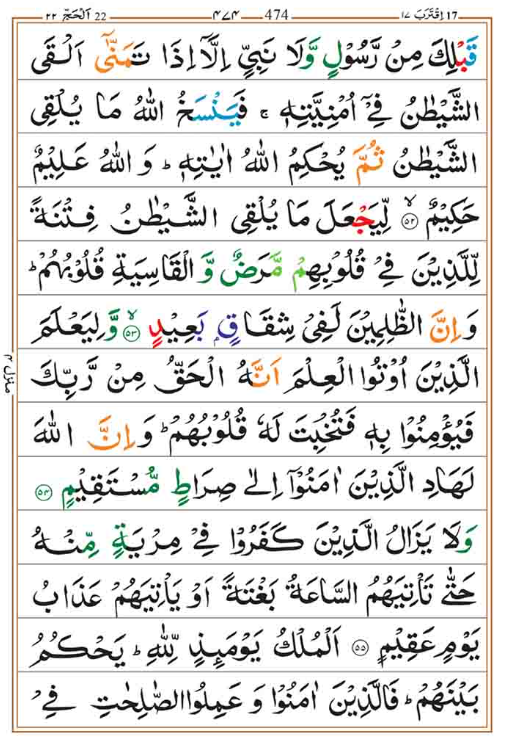 ١٧ اِقْتَرَبَ 17 474 ٤٧٤ 22 اَلْحَجّ ٢٢
قَبْلِكَ مِنْ رَّسُوْلٍ وَّلَا نَبِيٍّ اِلَّاۤ اِذَا تَمَنّٰۤى اَلْقَى
الشَّيْطٰنُ فِيْۤ اُمْنِيَّتِهٖ ۚ فَيَنْسَخُ اللّٰهُ مَا يُلْقِى
الشَّيْطٰنُ ثُمَّ يُحْكِمُ اللّٰهُ اٰيٰتِهٖ ؕ وَ اللّٰهُ عَلِيْمٌ
حَكِيْمٌ ۙ﴿٥٢﴾ لِّيَجْعَلَ مَا يُلْقِى الشَّيْطٰنُ فِتْنَةً
لِّلَّذِيْنَ فِيْ قُلُوْبِهِمْ مَّرَضٌ وَّ الْقَاسِيَةِ قُلُوْبُهُمْ ؕ
وَ اِنَّ الظّٰلِمِيْنَ لَفِيْ شِقَاقٍۭ بَعِيْدٍ ۙ﴿٥٣﴾ وَّ لِيَعْلَمَ
الَّذِيْنَ اُوْتُوا الْعِلْمَ اَنَّهُ الْحَقُّ مِنْ رَّبِّكَ
فَيُؤْمِنُوْا بِهٖ فَتُخْبِتَ لَهٗ قُلُوْبُهُمْ ؕ وَ اِنَّ اللّٰهَ
لَهَادِ الَّذِيْنَ اٰمَنُوْۤا اِلٰى صِرَاطٍ مُّسْتَقِيْمٍ ﴿٥٤﴾
وَلَا يَزَالُ الَّذِيْنَ كَفَرُوْا فِيْ مِرْيَةٍ مِّنْهُ
حَتّٰى تَاْتِيَهُمُ السَّاعَةُ بَغْتَةً اَوْ يَاْتِيَهُمْ عَذَابُ
يَوْمٍ عَقِيْمٍ ﴿٥٥﴾ اَلْمُلْكُ يَوْمَىِٕذٍ لِّلّٰهِ ؕ يَحْكُمُ
بَيْنَهُمْ ؕ فَالَّذِيْنَ اٰمَنُوْا وَ عَمِلُوا الصّٰلِحٰتِ فِيْ
منزل ٤